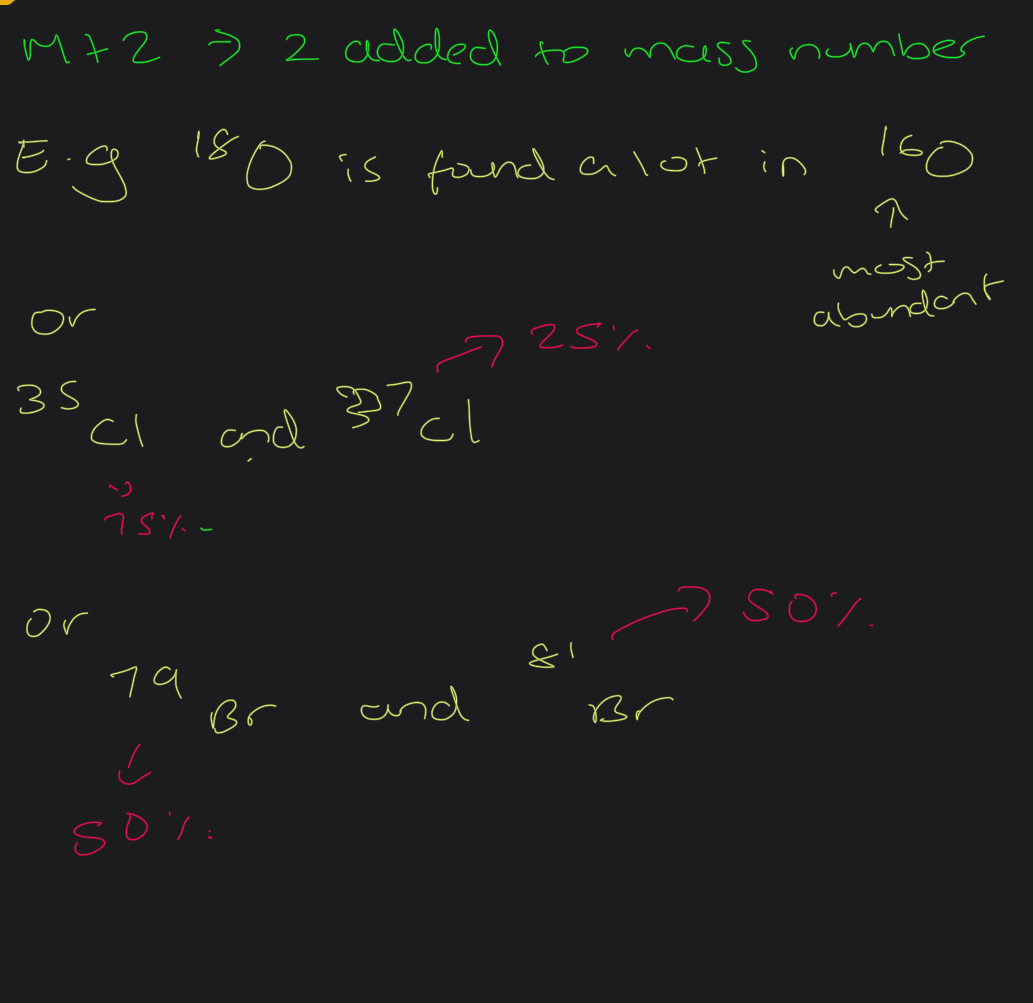 M+2 → 2 added to mass number
E.g ¹⁸O is found a lot in ¹⁶O
↑
most
abundant
or
→ 25%.
³⁵Cl and ³⁷Cl
→
75%.
or
→ 50%.
⁷⁹Br and ⁸¹Br
↓
50%.